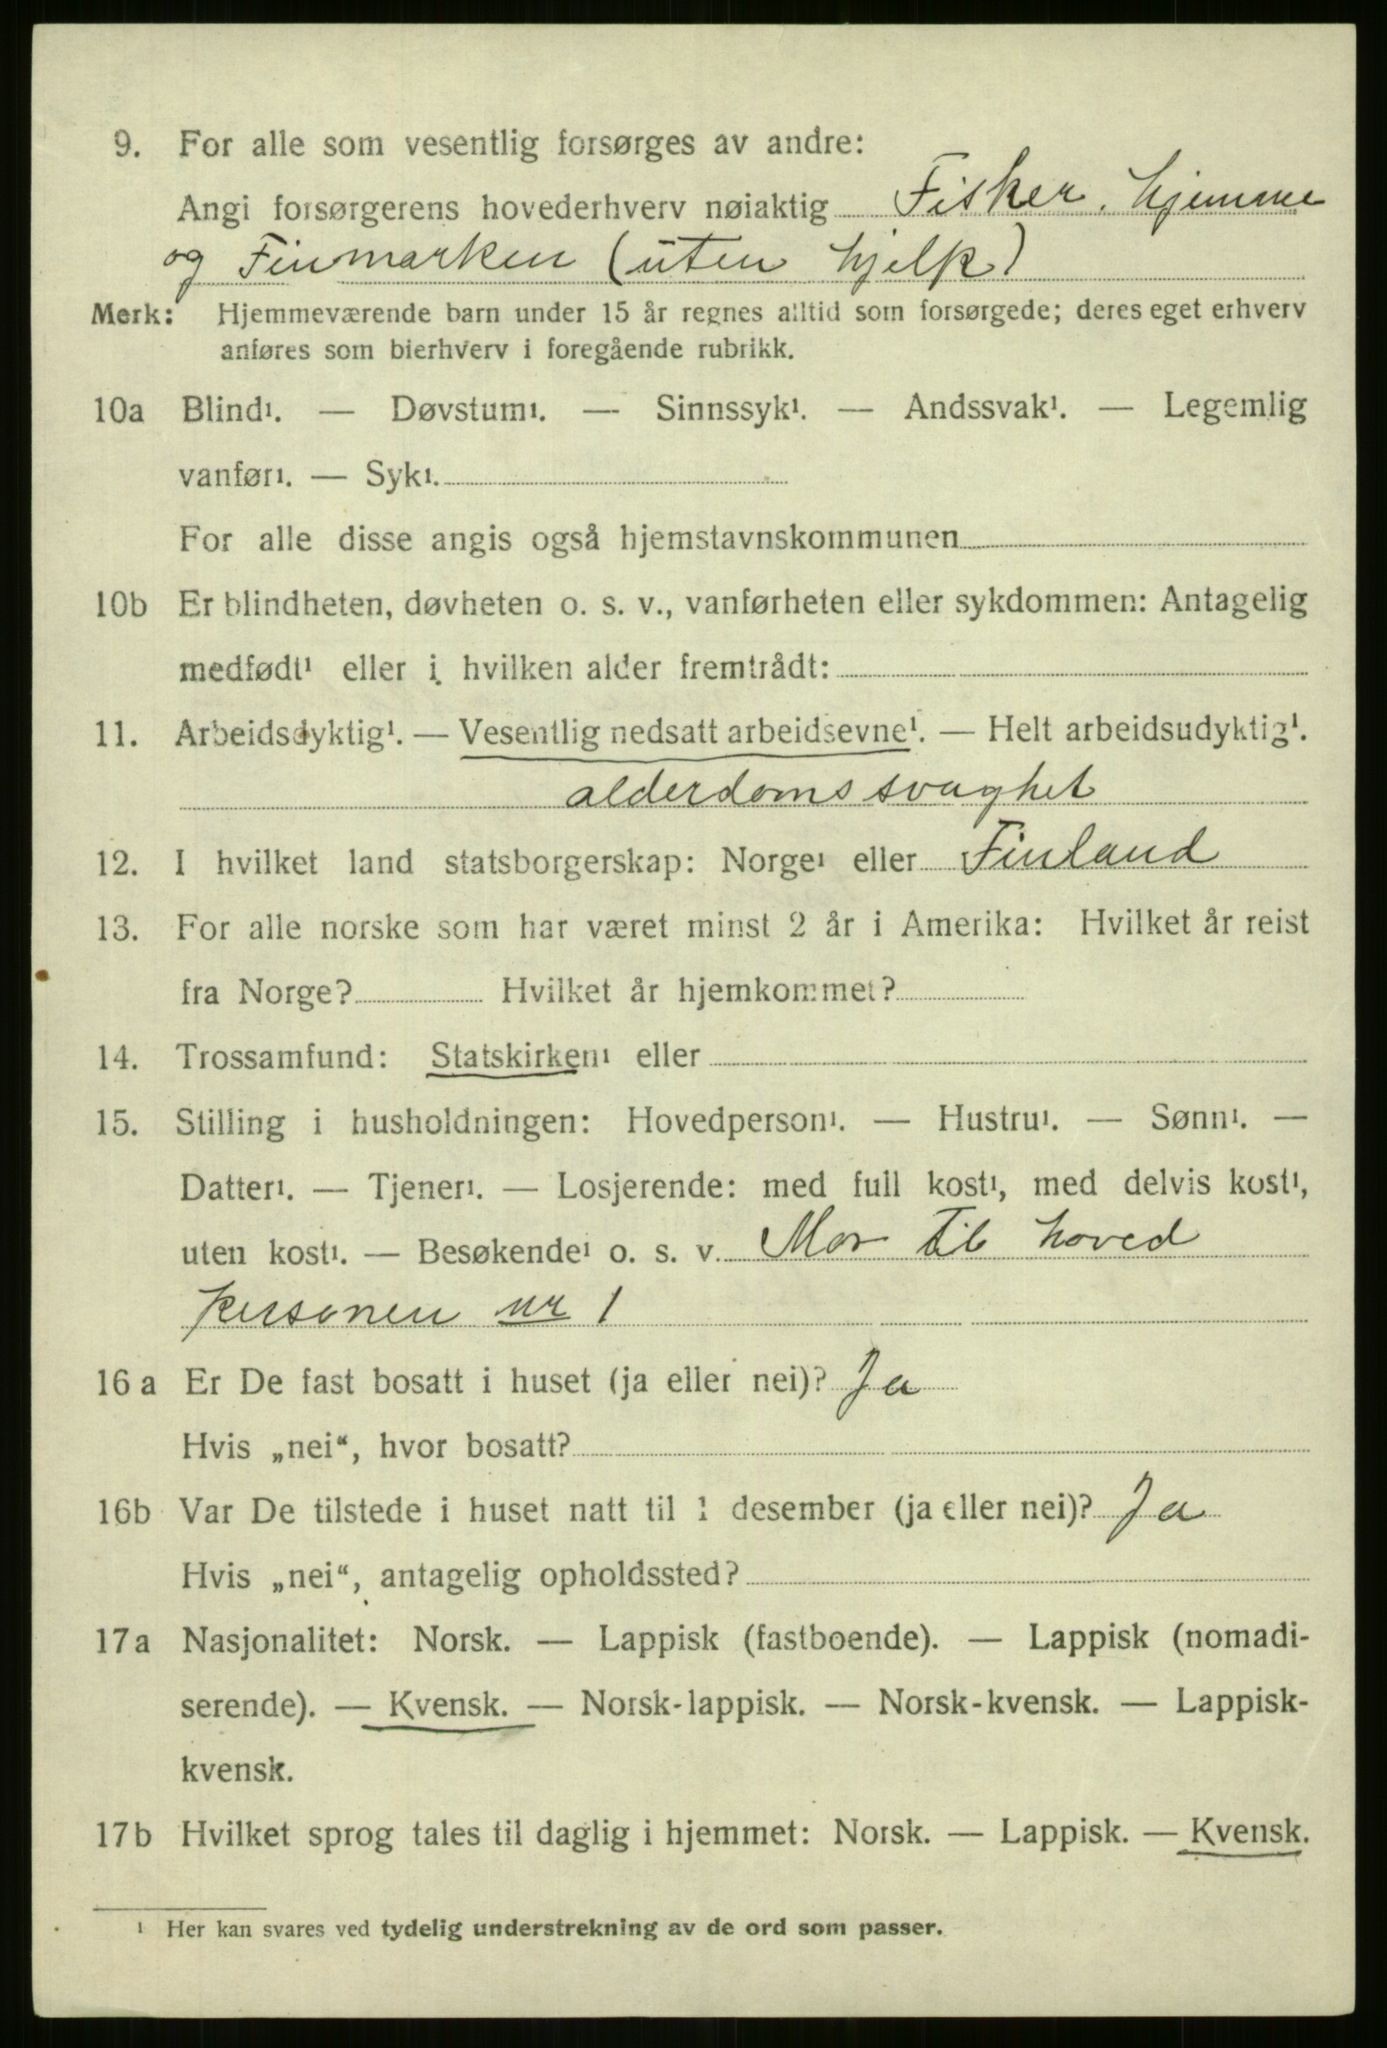 9. For alle som vesentlig forsørges av andre:
Angi forsørgerens hovederhverv nøiaktig Fisker. hjemme
og Finmarken (uten hjelp)
Merk: Hjemmeværende barn under 15 år regnes alltid som forsørgede; deres eget erhverv
anføres som bierhverv i foregående rubrikk.
10a Blind¹. — Døvstum¹. — Sinnssyk¹. — Andssvak¹. — Legemlig
vanfør¹. — Syk¹.
For alle disse angis også hjemstavnskommunen
10b Er blindheten, døvheten o. s. v., vanførheten eller sykdommen: Antagelig
medfødt¹ eller i hvilken alder fremtrådt:
11. Arbeidsdyktig¹. — Vesentlig nedsatt arbeidsevne¹. — Helt arbeidsudyktig¹.
alderdomssvaghet
12. I hvilket land statsborgerskap: Norge¹ eller Finland
13. For alle norske som har været minst 2 år i Amerika: Hvilket år reist
fra Norge? Hvilket år hjemkommet?
14. Trossamfund: Statskirken¹ eller
15. Stilling i husholdningen: Hovedperson¹. — Hustru¹. — Sønn¹. —
Datter¹. — Tjener¹. — Losjerende: med full kost¹, med delvis kost¹,
uten kost¹. — Besøkende¹ o. s. v. Mor til hoved
personen nr 1
16 a Er De fast bosatt i huset (ja eller nei)? Ja
Hvis „nei“, hvor bosatt?
16b Var De tilstede i huset natt til 1 desember (ja eller nei)? Ja
Hvis „nei“, antagelig opholdssted?
17a Nasjonalitet: Norsk. — Lappisk (fastboende). — Lappisk (nomadi-
serende). — Kvensk. — Norsk-lappisk. — Norsk-kvensk. — Lappisk-
kvensk.
17b Hvilket sprog tales til daglig i hjemmet: Norsk. — Lappisk. — Kvensk.
¹ Her kan svares ved tydelig understrekning av de ord som passer.